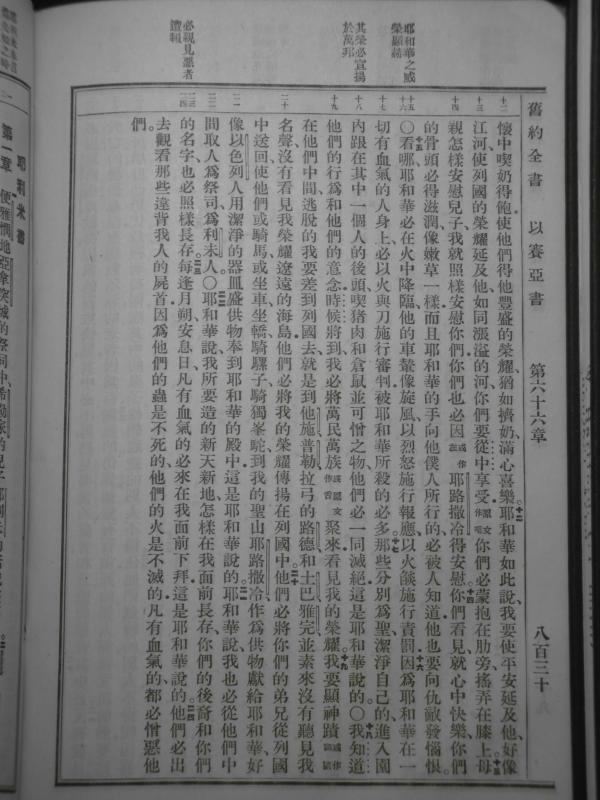 舊約全書 以賽亞書 第六十六章 八百三十八
耶和華之威
榮顯赫
其榮必宣揚
於萬邦
必視見惡者
遭報
懷中喫奶得飽使他們得他豐盛的榮耀猶如擠奶滿心喜樂。十二耶和華如此說我要使平安延及他好像
江河使列國的榮耀延及他如同漲溢的河你們要從中享受你們必蒙抱在肋旁搖弄在膝上。十三母
親怎樣安慰兒子我就照樣安慰你們你們也必因或作在耶路撒冷得安慰。十四你們看見就心中快樂你們
的骨頭必得滋潤像嫩草一樣而且耶和華的手向他僕人所行的必被人知道他也要向仇敵發惱恨。
〇十五看哪耶和華必在火中降臨他的車輦像旋風以烈怒施行報應以火燄施行責罰。十六因爲耶和華在一
切有血氣的人身上必以火與刀施行審判被耶和華所殺的必多。十七那些分別爲聖潔淨自己的進入園
內跟在其中一個人的後頭喫豬肉和倉鼠並可憎之物他們必一同滅絕這是耶和華說的。〇十八我知道
他們的行爲和他們的意念時候將到我必將萬民萬族聚來看見我的榮耀。十九我要顯神蹟
在他們中間逃脫的我要差到列國去就是到他施普勒拉弓的路德和土巴雅完並素來沒有聽見我
名聲沒有看見我榮耀遼遠的海島他們必將我的榮耀傳揚在列國中。二十他們必將你們的弟兄從列國
中送回使他們或騎馬或坐車坐轎騎騾子騎獨峯駝到我的聖山耶路撒冷作爲供物獻給耶和華好
像以色列人用潔淨的器皿盛供物奉到耶和華的殿中這是耶和華說的。二一耶和華說我也必從他們中
間取人爲祭司爲利未人。〇二二耶和華說我所要造的新天新地怎樣在我面前長存你們的後裔和你們
的名字也必照樣長存。二三每逢月朔安息日凡有血氣的必來在我面前下拜這是耶和華說的。二四他們必出
去觀看那些違背我人的屍首因爲他們的蟲是不死的他們的火是不滅的凡有血氣的都必憎惡他
們。
耶利米書
第一章